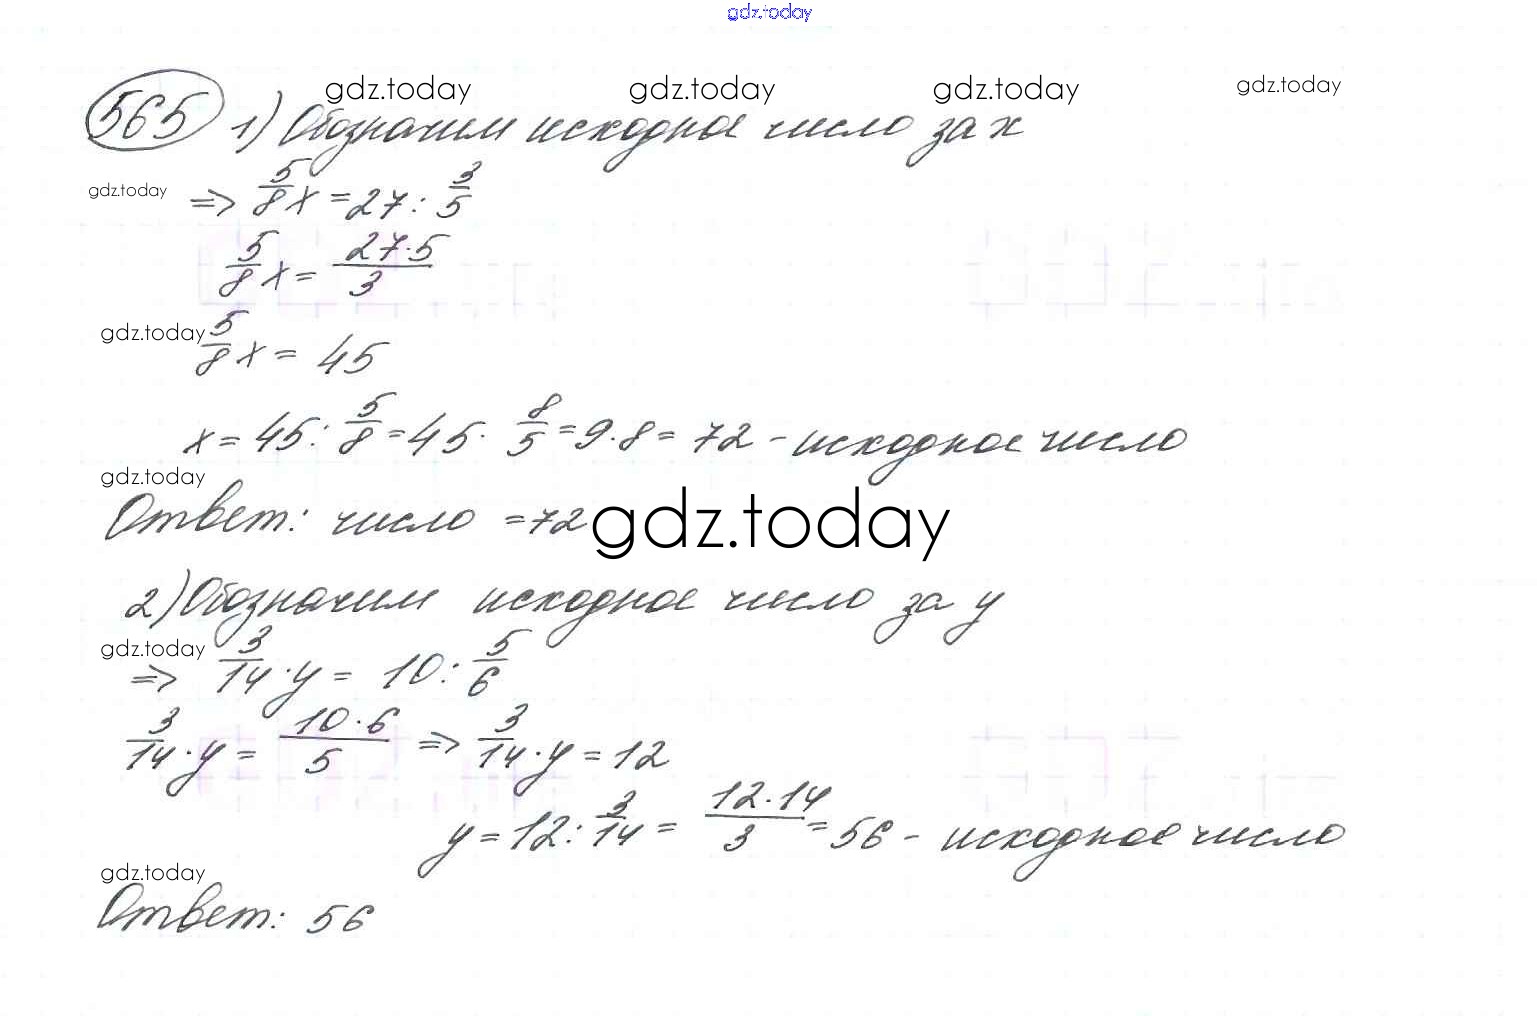 gdz.today
gdz.today gdz.today gdz.today gdz.today
565 1) Обозначим исходное число за x
gdz.today
=> 5/8 x = 27 : 3/5
5/8 x = 27·5/3
gdz.today
5/8 x = 45
x = 45 : 5/8 = 45 · 8/5 = 9·8 = 72 - исходное число
gdz.today
Ответ: число = 72
gdz.today
2) Обозначим исходное число за y
gdz.today
=> 3/14 · y = 10 : 5/6
3/14 · y = 10·6/5 => 3/14 · y = 12
y = 12 : 3/14 = 12·14/3 = 56 - исходное число
gdz.today
Ответ: 56